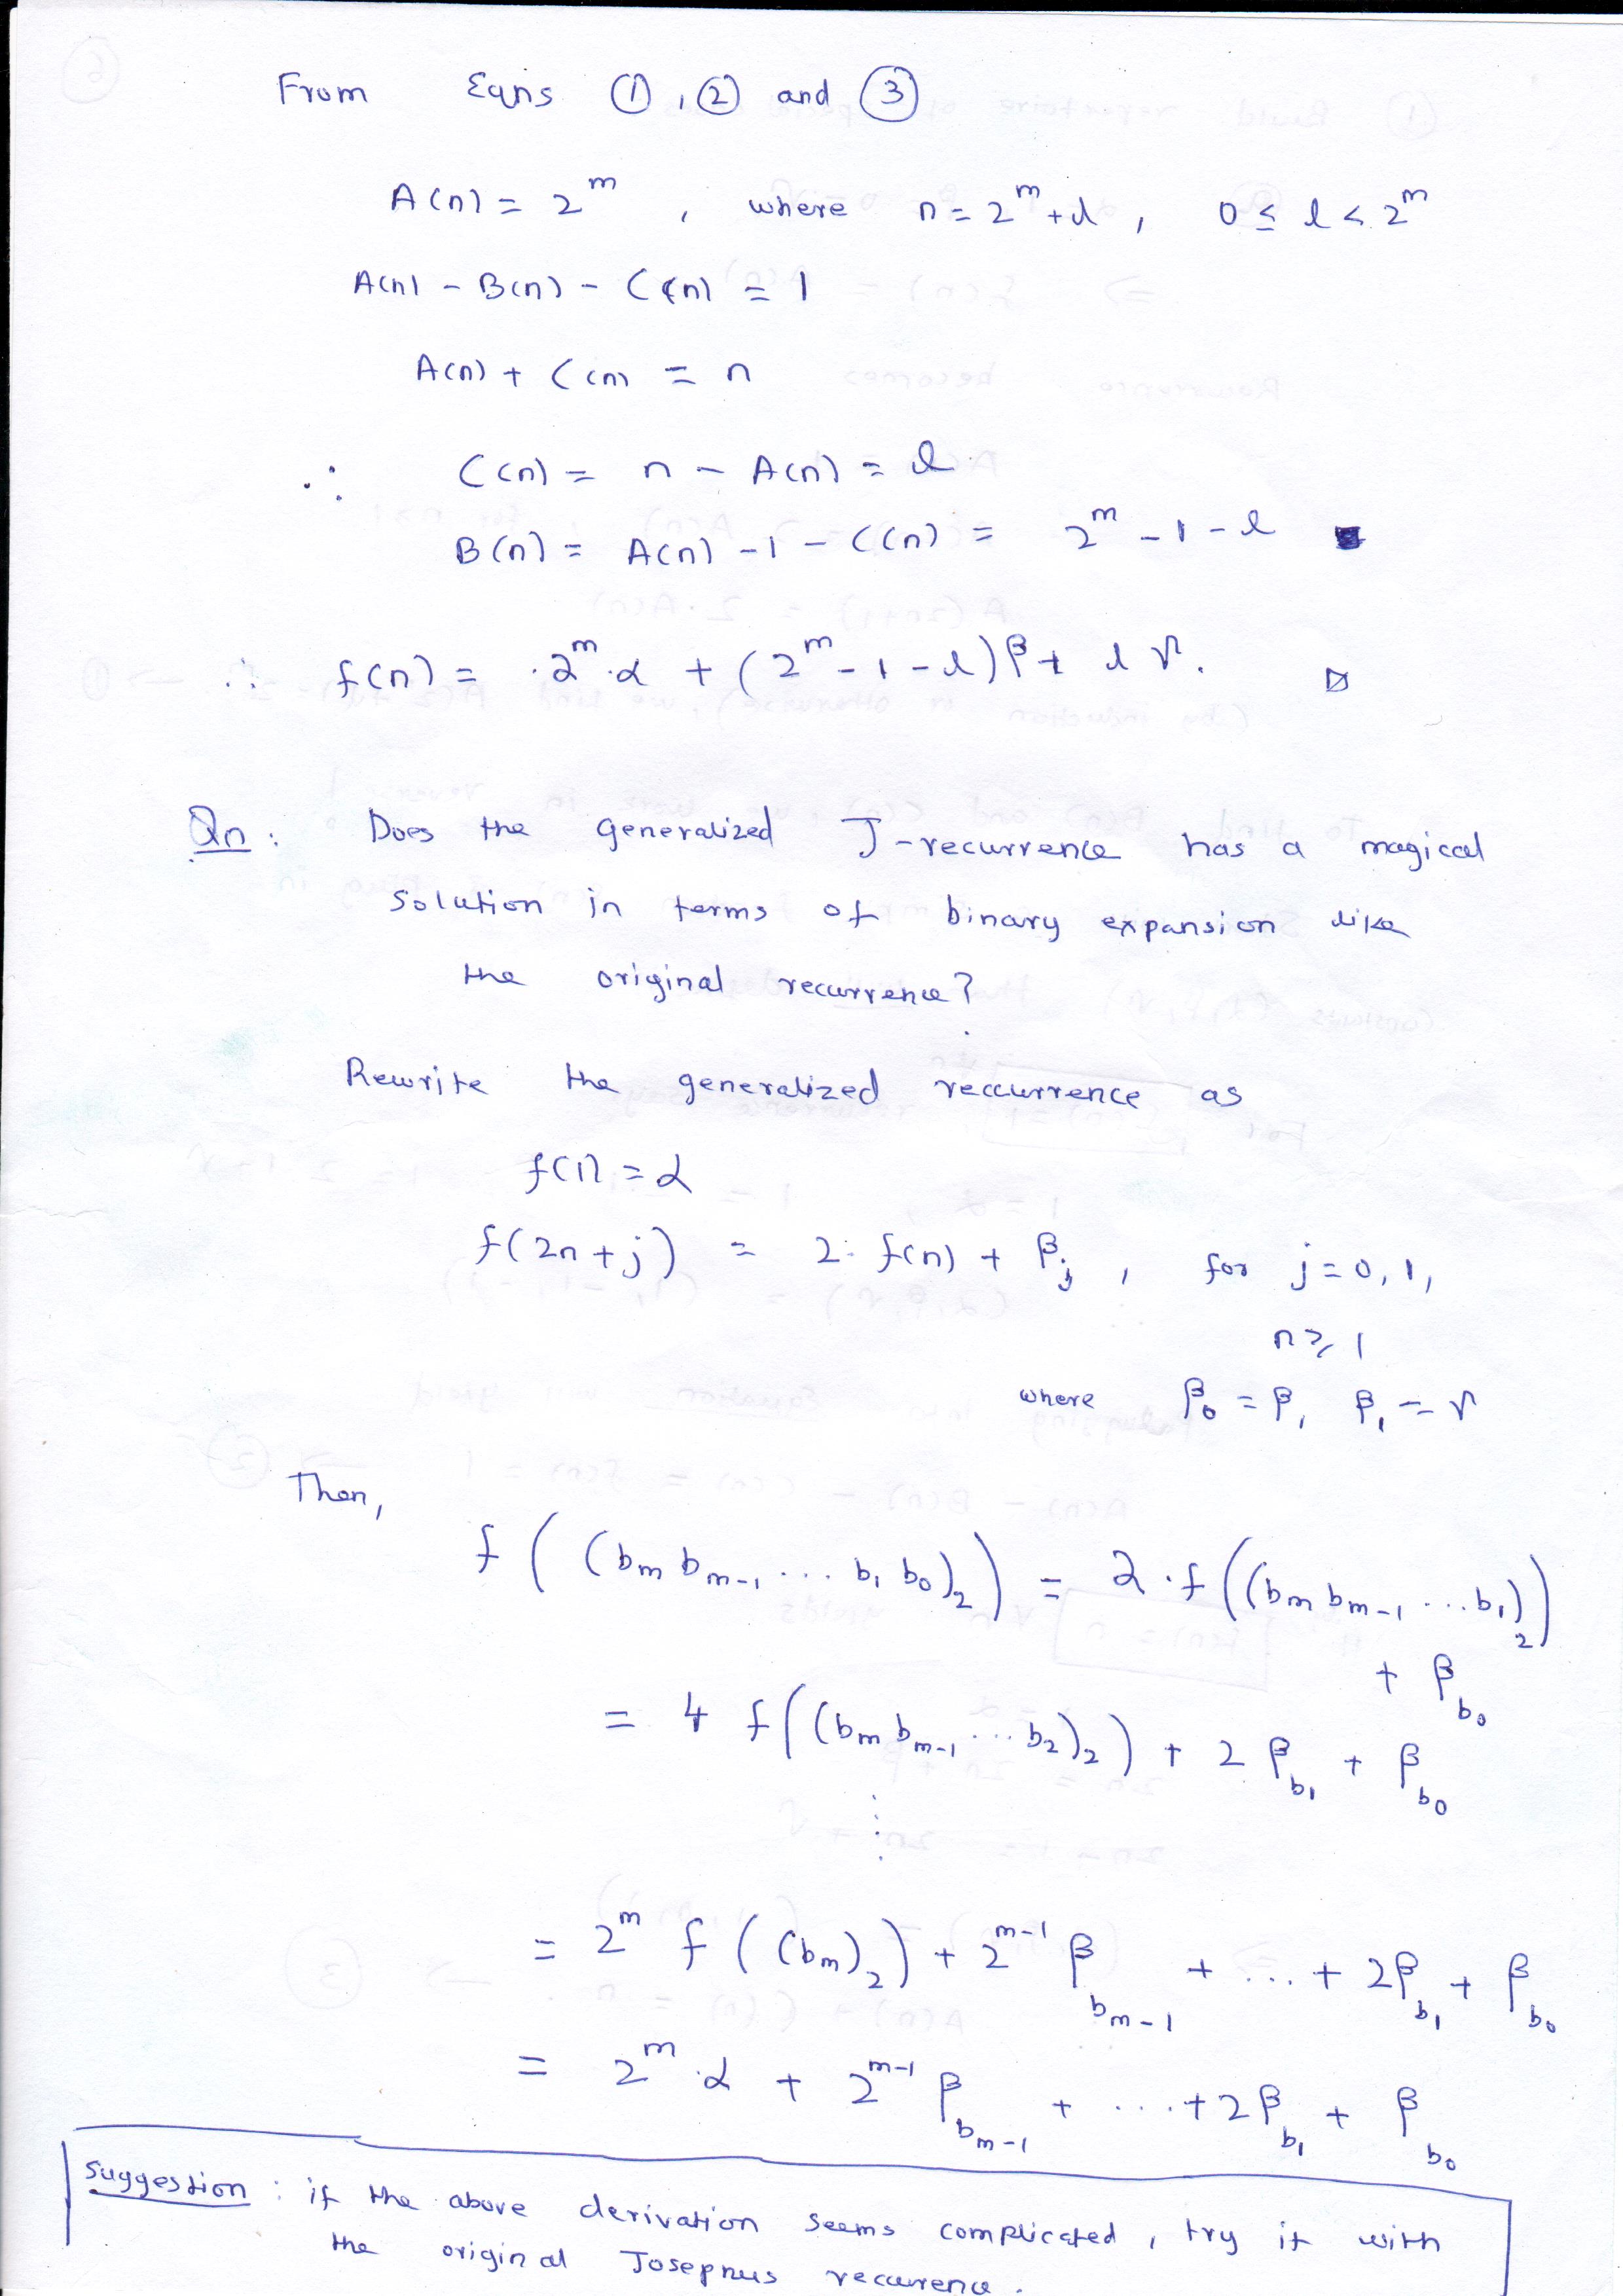 From Eqns ①, ② and ③
A(n) = 2^m , where n = 2^m + l , 0 ≤ l < 2^m
A(n) - B(n) - C(n) = 1
A(n) + C(n) = n
∴ C(n) = n - A(n) = l
B(n) = A(n) - 1 - C(n) = 2^m - 1 - l ■
∴ f(n) = 2^m · α + (2^m - 1 - l) β + l γ.
Qn: Does the generalized J-recurrence has a magical
solution in terms of binary expansion like
the original recurrence?
Rewrite the generalized reccurrence as
f(1) = α
f(2n + j) = 2 · f(n) + β_j , for j = 0, 1,
n ≥ 1
where β_0 = β, β_1 = γ
Then,
f((b_m b_{m-1} ... b_1 b_0)_2) = 2 · f((b_m b_{m-1} ... b_1)_2)
+ β_{b_0}
= 4 f((b_m b_{m-1} ... b_2)_2) + 2 β_{b_1} + β_{b_0}
⋮
= 2^m f((b_m)_2) + 2^{m-1} β_{b_{m-1}} + ... + 2β_{b_1} + β_{b_0}
= 2^m · α + 2^{m-1} β_{b_{m-1}} + ... + 2β_{b_1} + β_{b_0}
Suggestion : if the above derivation seems complicated, try it with
the original Josephus recurrence.